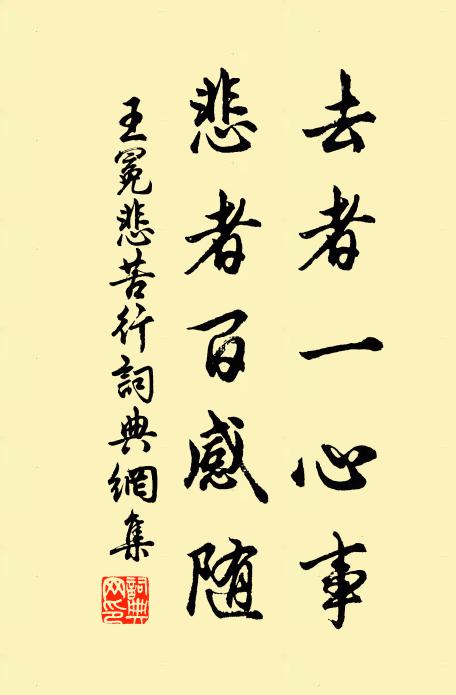 去者一心事
悲者百感随
王冕悲苦行詞典網集
詞典网印